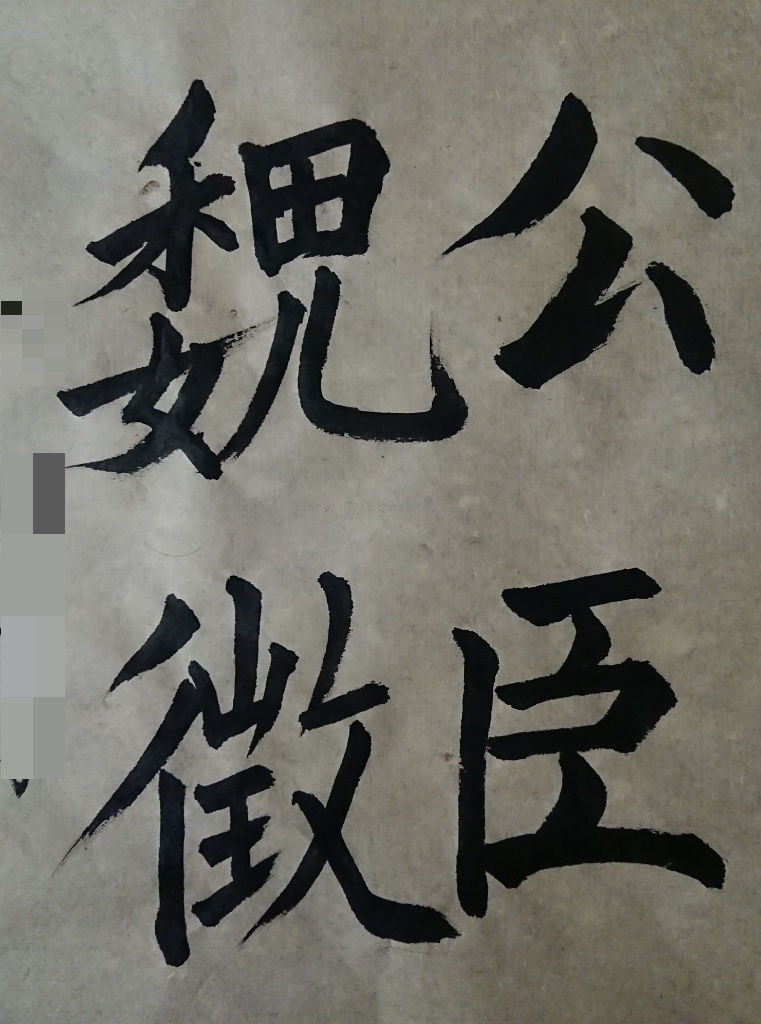 公臣
魏徵